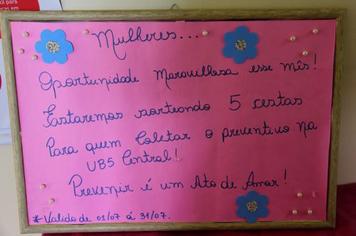 Mulheres...
Oportunidade Maravilhosa esse mês!
Estaremos sorteando 5 cestas
Para quem Coletar o preventivo na
UBS Central!
Prevenir é um Ato de Amor!
* Valido de 01/07 á 31/07.